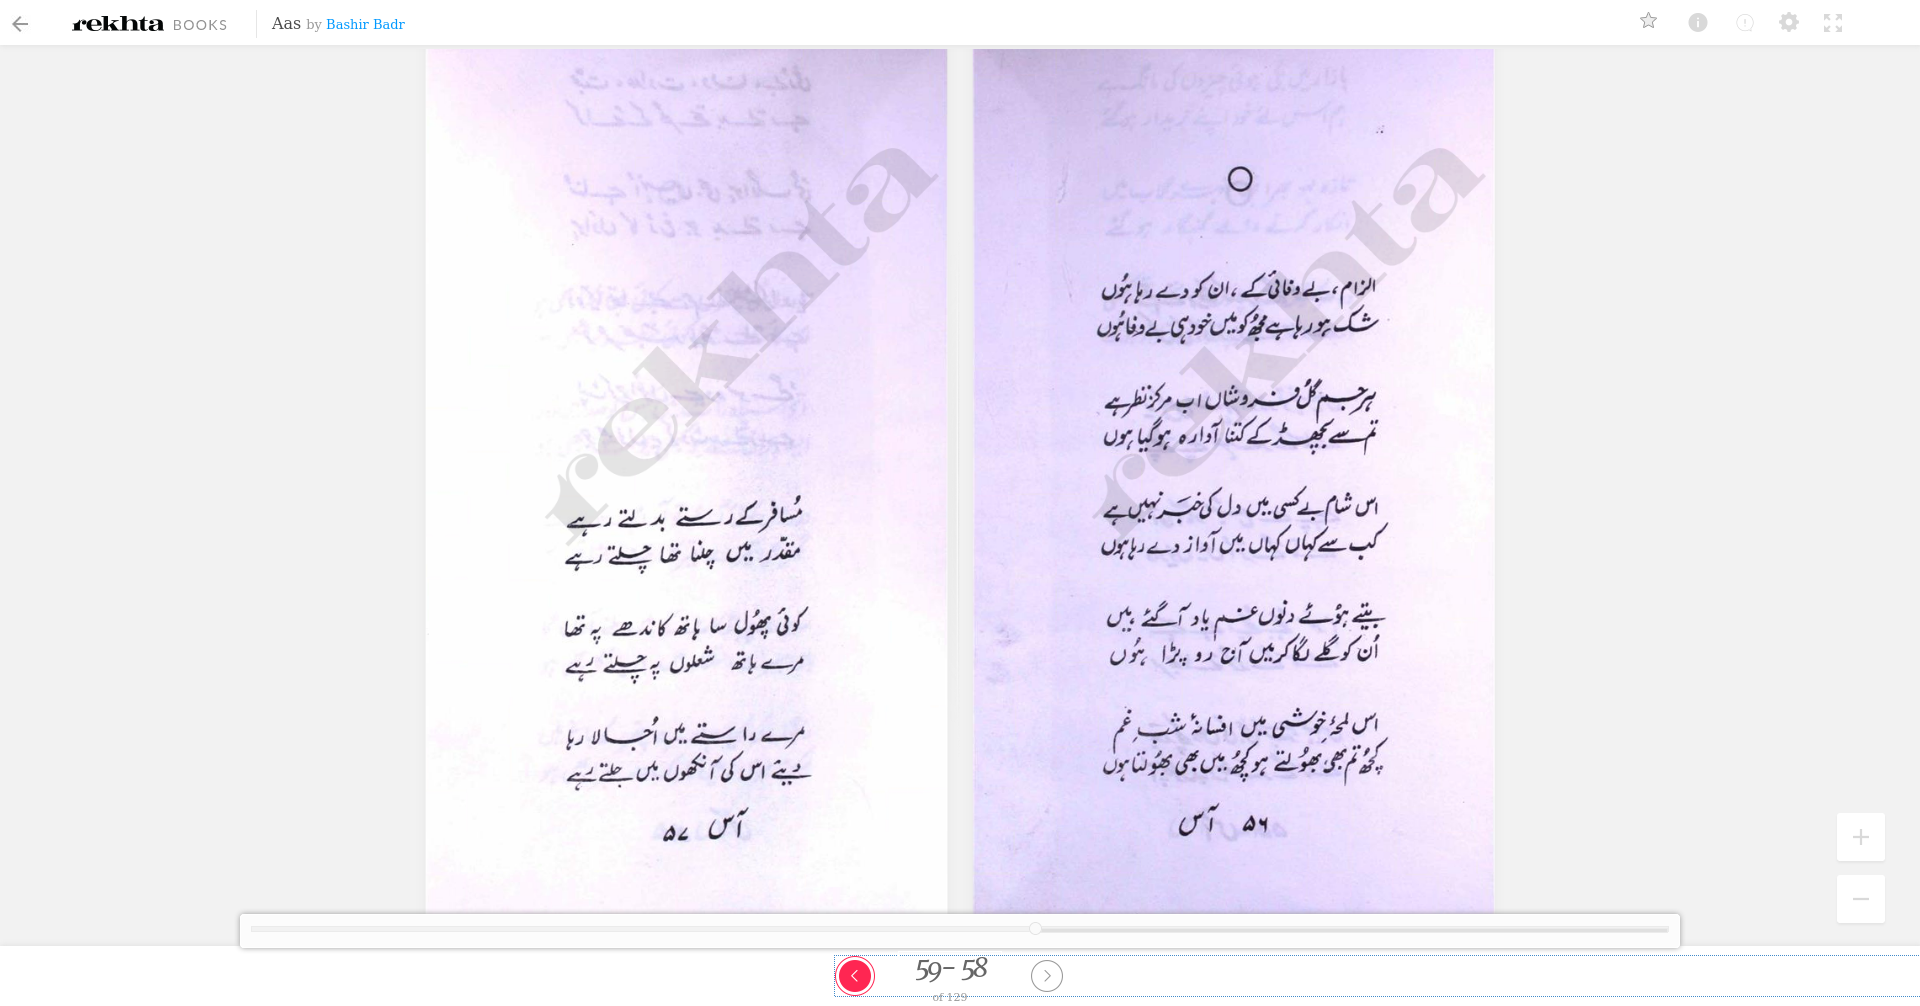 rekhta BOOKS Aas by Bashir Badr
الزام، بے وفائی کے، ان کو دے رہا ہُوں
شک ہو رہا ہے مجھُ کو میں خود ہی بے وفا ہُوں
ہر جسم گُل فروشاں اب مرکز نظر ہے
تم سے بچھڑ کے کتنا آوارہ ہو گیا ہوں
اس شام بے کسی میں دل کی خبر نہیں ہے
کب سے کہاں کہاں میں آواز دے رہا ہوں
بیتے ہوئے دنوں غم یاد آ گئے ہیں
اُن کو گلے لگا کر میں آج رو پڑا ہُوں
اس لمحۂ خوشی میں افسانۂ شبِ غم
کچھُ تم بھی بھُولتے ہو کچھُ میں بھی بھُولتا ہوں
۵۶ آس
مُسافر کے رستے بدلتے رہے
مقدّر میں چلنا تھا چلتے رہے
کوئی پھُول سا ہاتھ کاندھے پہ تھا
مرے ہاتھ شعلوں پہ چلتے رہے
مرے راستے میں اُجالا رہا
دیئے اس کی آنکھوں میں جلتے رہے
آس ۵۷
rekhta
rekhta
59- 58
of 129